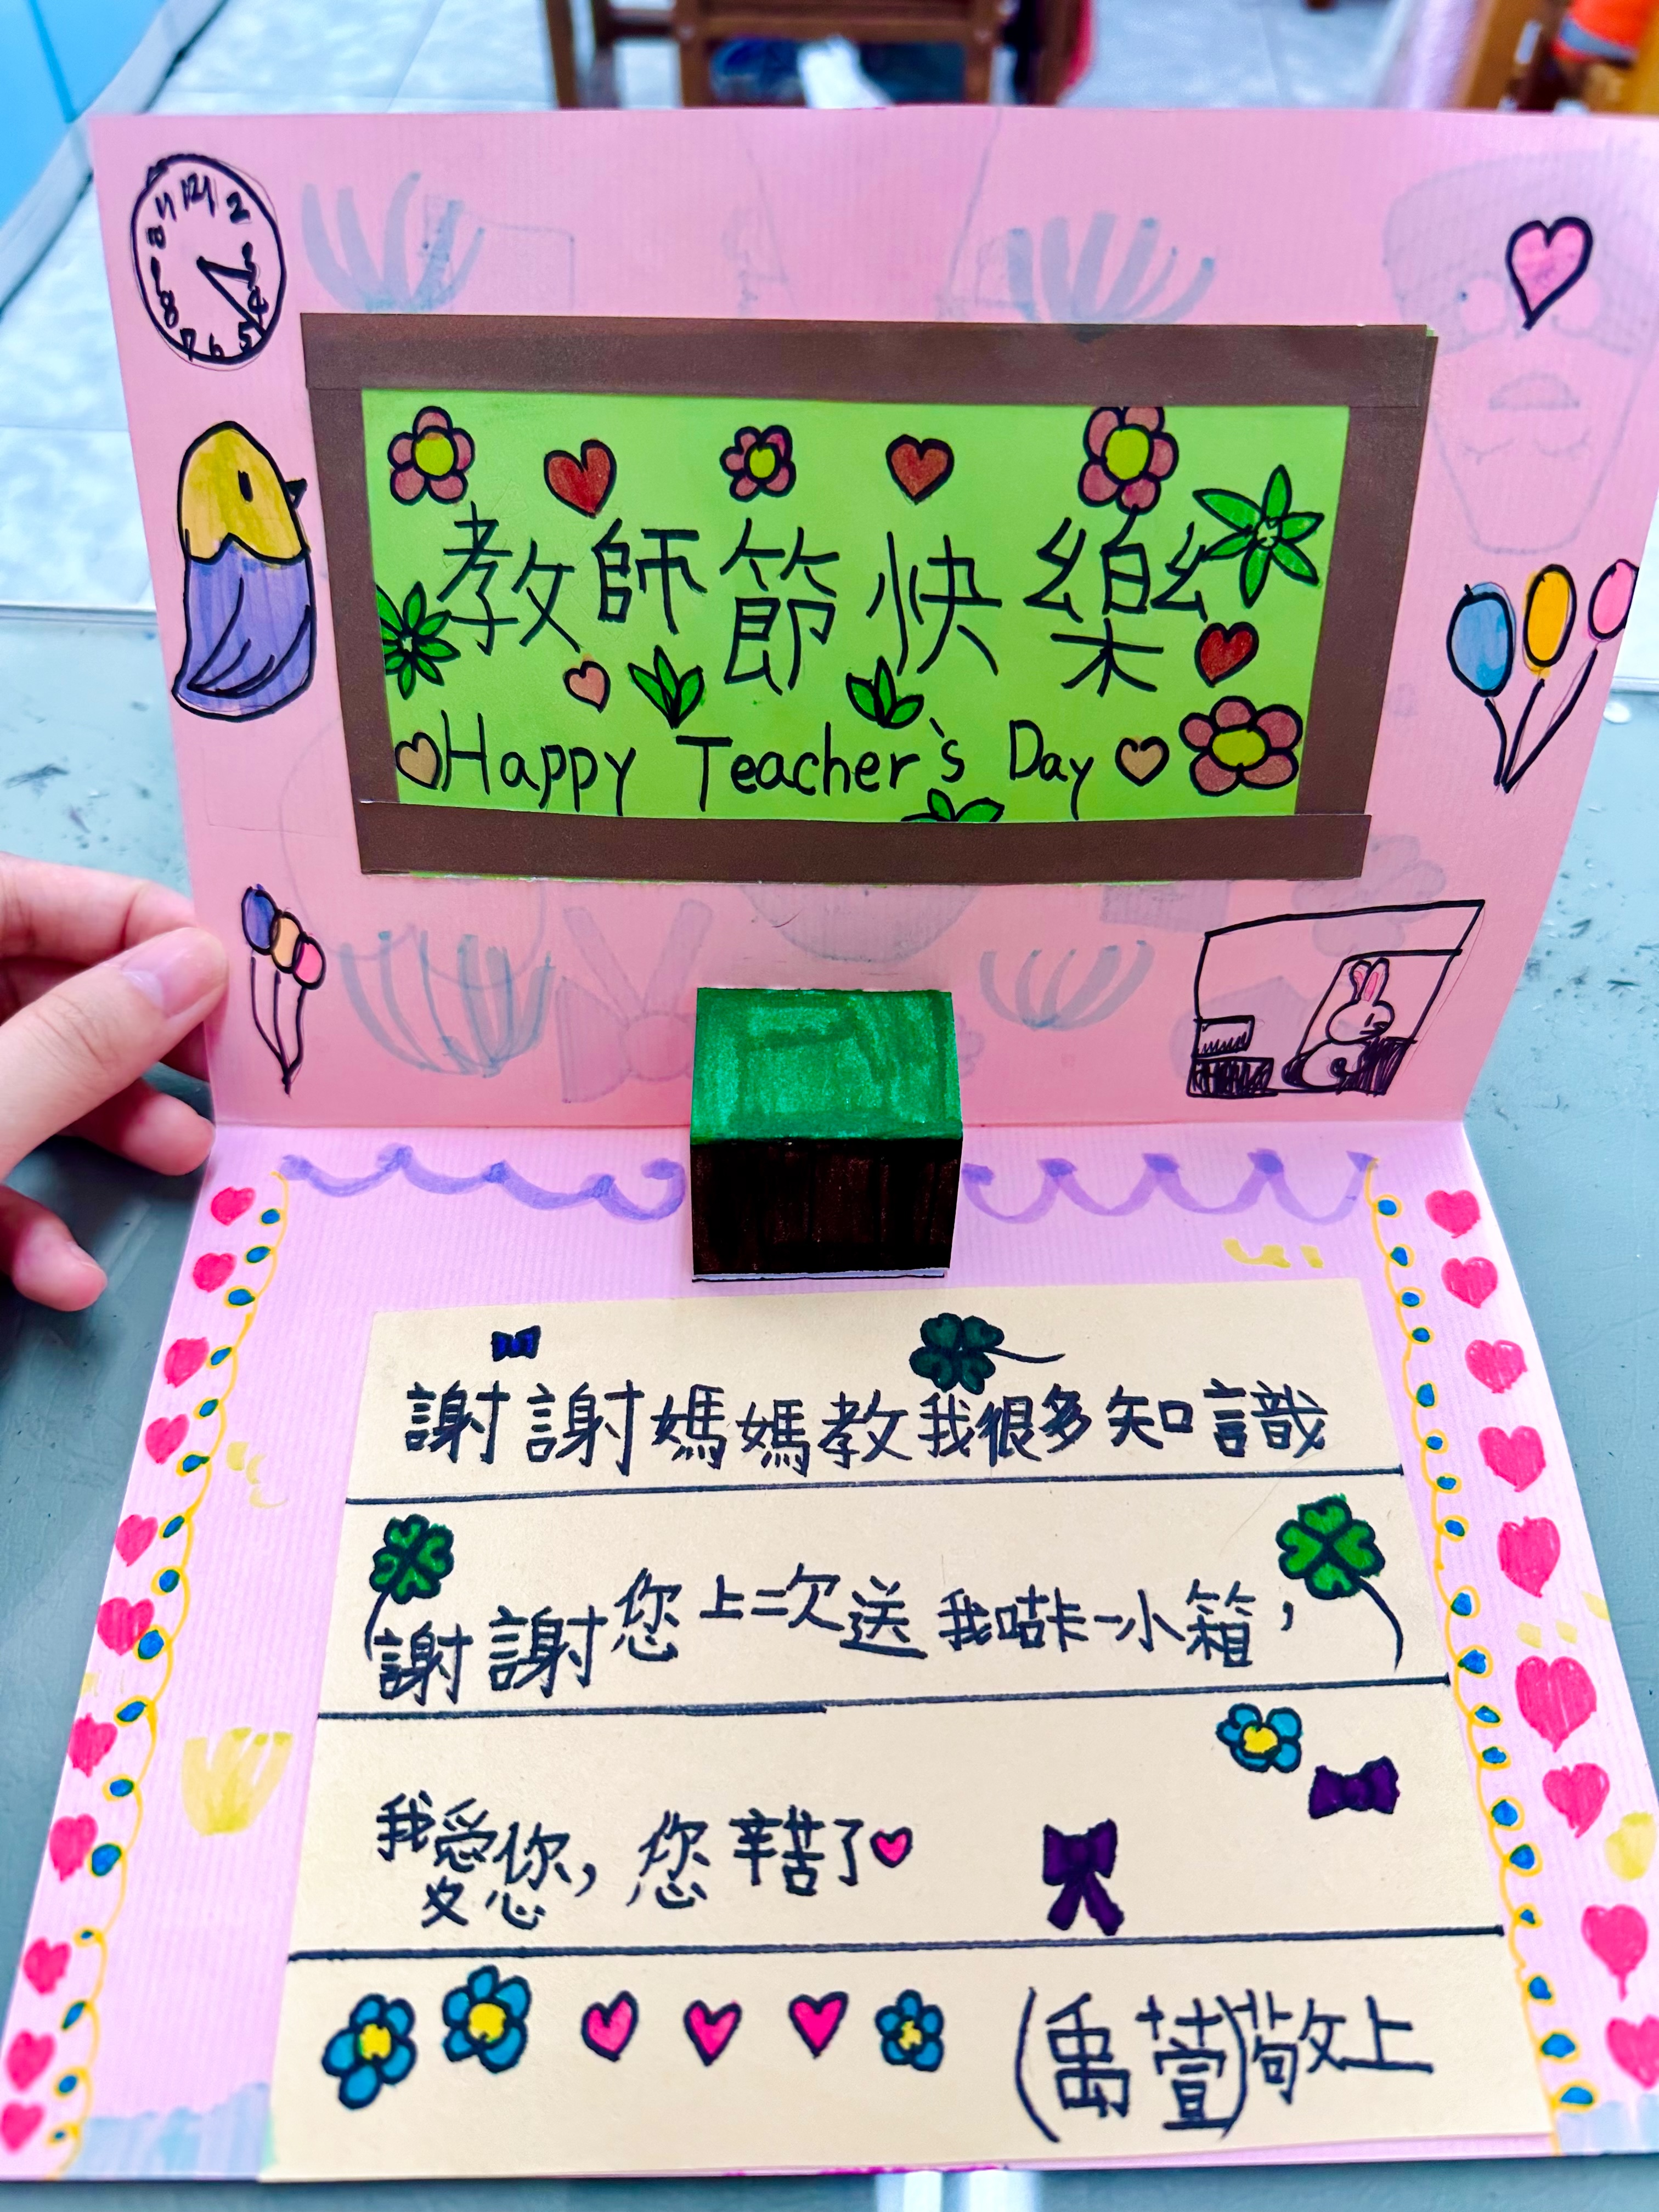 教師節快樂
Happy Teacher's Day
謝謝媽媽教我很多知識
謝謝您上二次送我咕卡一小箱，
我愛您，您辛苦了
(禹萱)敬上